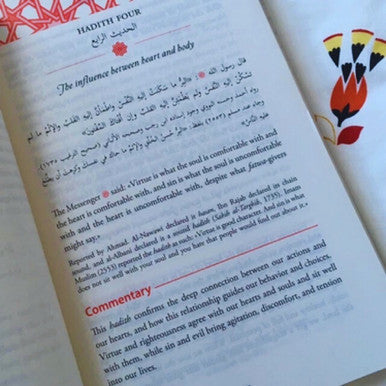 HADITH FOUR
الحديث الرابع
The influence between heart and body
قال رسول الله ﷺ: «البِرُّ ما سَكَنَتْ إليه النَّفْسُ واطمَأَنَّ إليه القَلْبُ والإثْمُ ما لم
تَسْكُنْ إليه النَّفْسُ ولم يَطْمَئِنَّ إليه القَلْبُ وإن أَفْتاكَ المُفْتُونَ».
The Messenger ﷺ said: «Virtue is what the soul is comfortable with and
the heart is comfortable with, and sin is what the soul is uncomfortable
with and the heart is uncomfortable with, despite what fatwa-givers
might say.»
Reported by Ahmad. Al-Nawawi declared it hasan, Ibn Rajab declared its chain
sound, and al-Albani declared it a sound hadith (Sahih al-Targhib, 1735). Imam
Muslim (2553) reported the hadith as such: «Virtue is good character. And sin is what
does not sit well with your soul and you hate that people would find out about it.»
Commentary
This hadith confirms the deep connection between our actions and
our hearts, and how this relationship guides our behavior and choices.
Virtue and righteousness agree with our hearts and souls and sit well
with them, while sin and evil bring agitation, discomfort, and tension
into our lives.